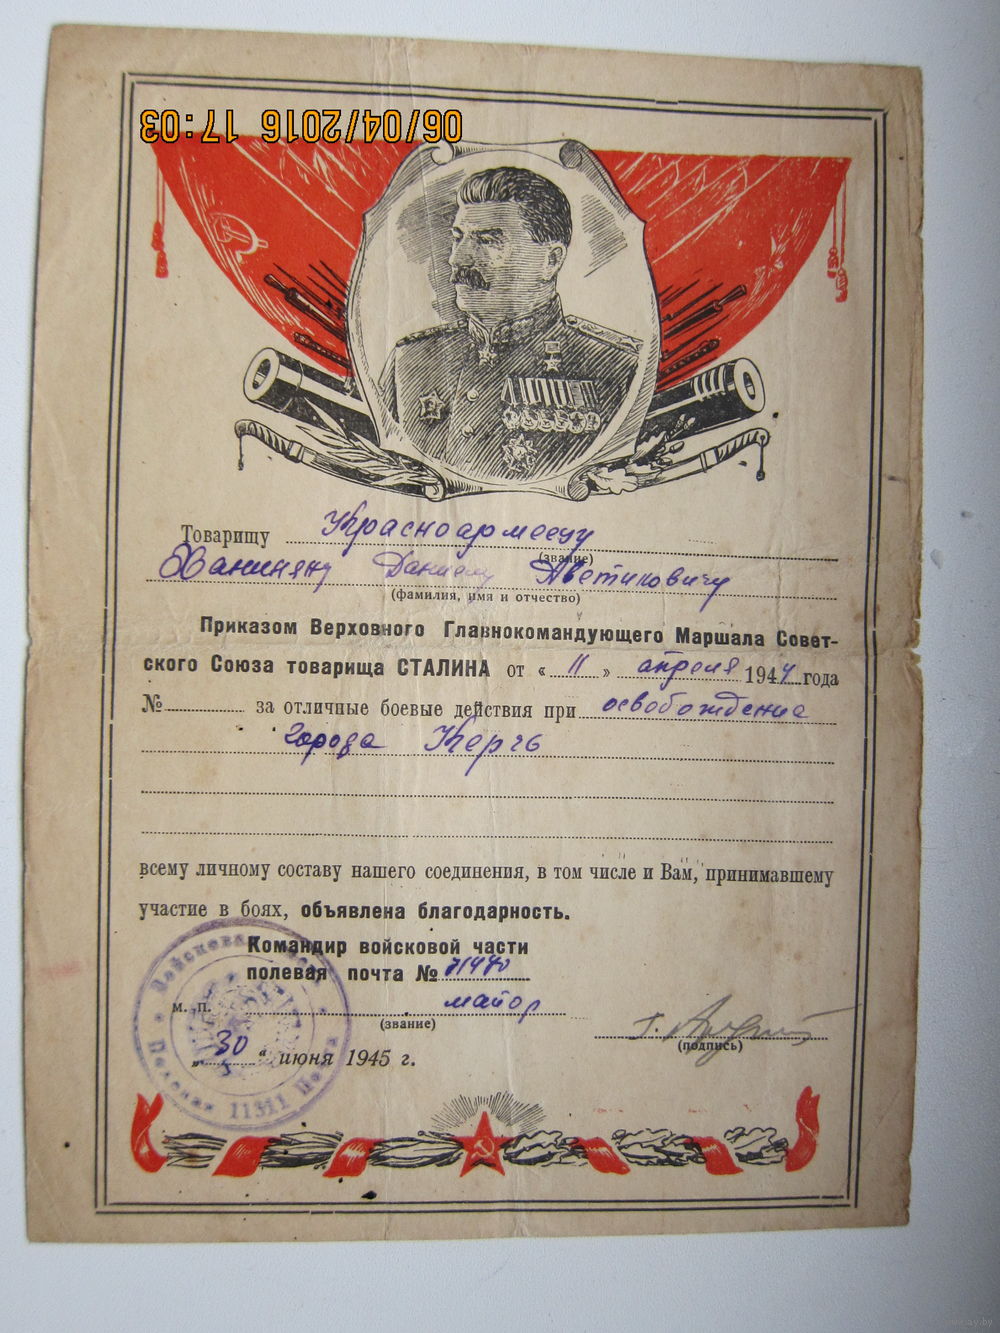 06/04/2016 17:03
Товарищу Красноармейцу
(звание)
Ханиняну Даниелу Аветиковичу
(фамилия, имя и отчество)
Приказом Верховного Главнокомандующего Маршала Совет-
ского Союза товарища СТАЛИНА от « 11 » апреля 1944 года
№ за отличные боевые действия при освобождение
города Керчь
всему личному составу нашего соединения, в том числе и Вам, принимавшему
участие в боях, объявлена благодарность.
Командир войсковой части
полевая почта № 71470
м. п. майор
(звание)
(подпись)
„ 30 “ июня 1945 г.
Войсковая
Полевая 11311 Почта